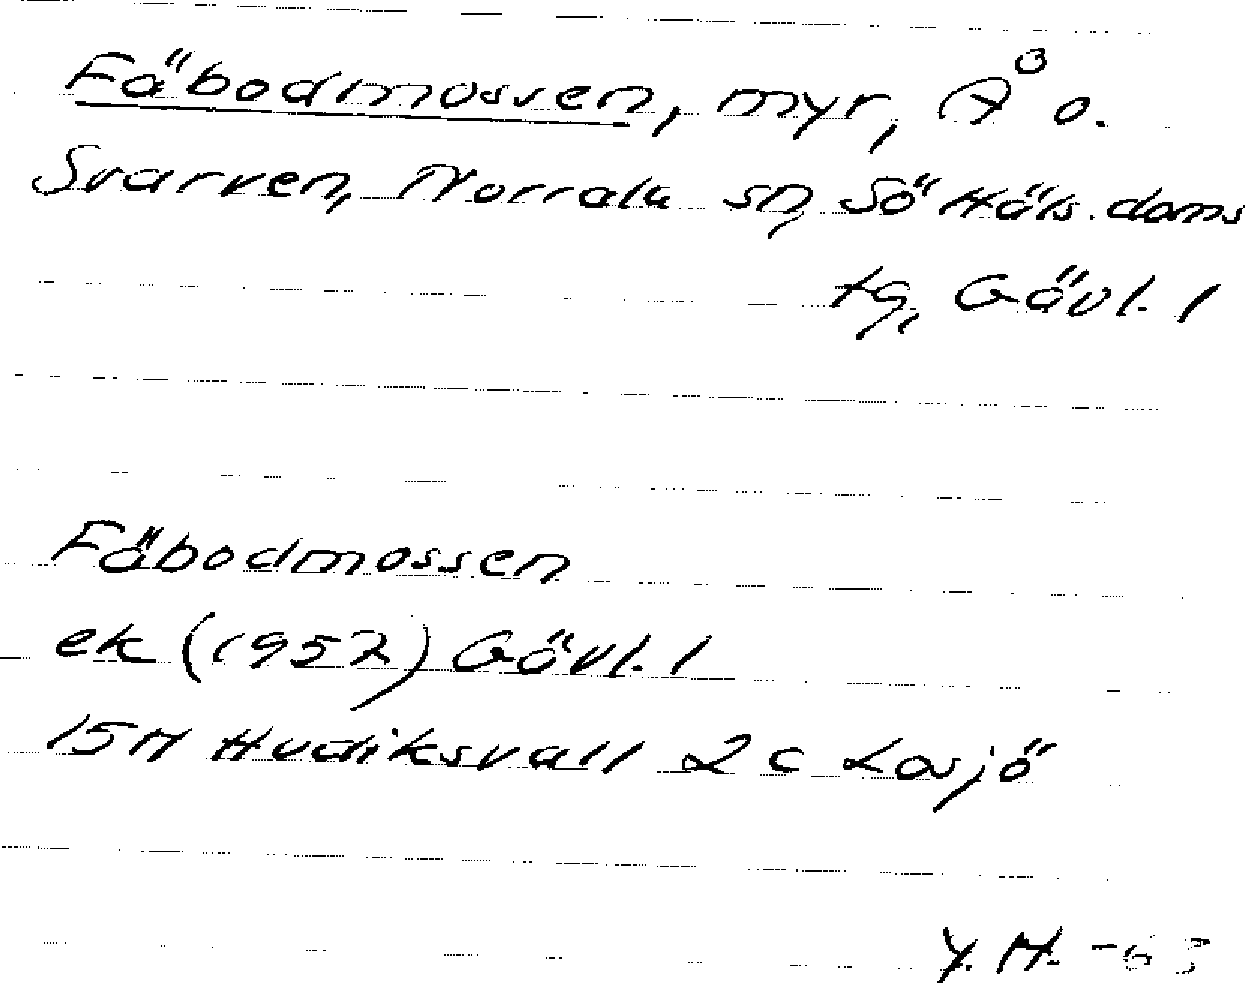 Fäbodmossen, myr, Å o.
Svarven, Norrala sn, Sö Häls. doms
tg, Gävl. l
Fäbodmossen
ek (1957) Gävl. l
15H Hudiksvall 2 c Losjö
Y.H. -63